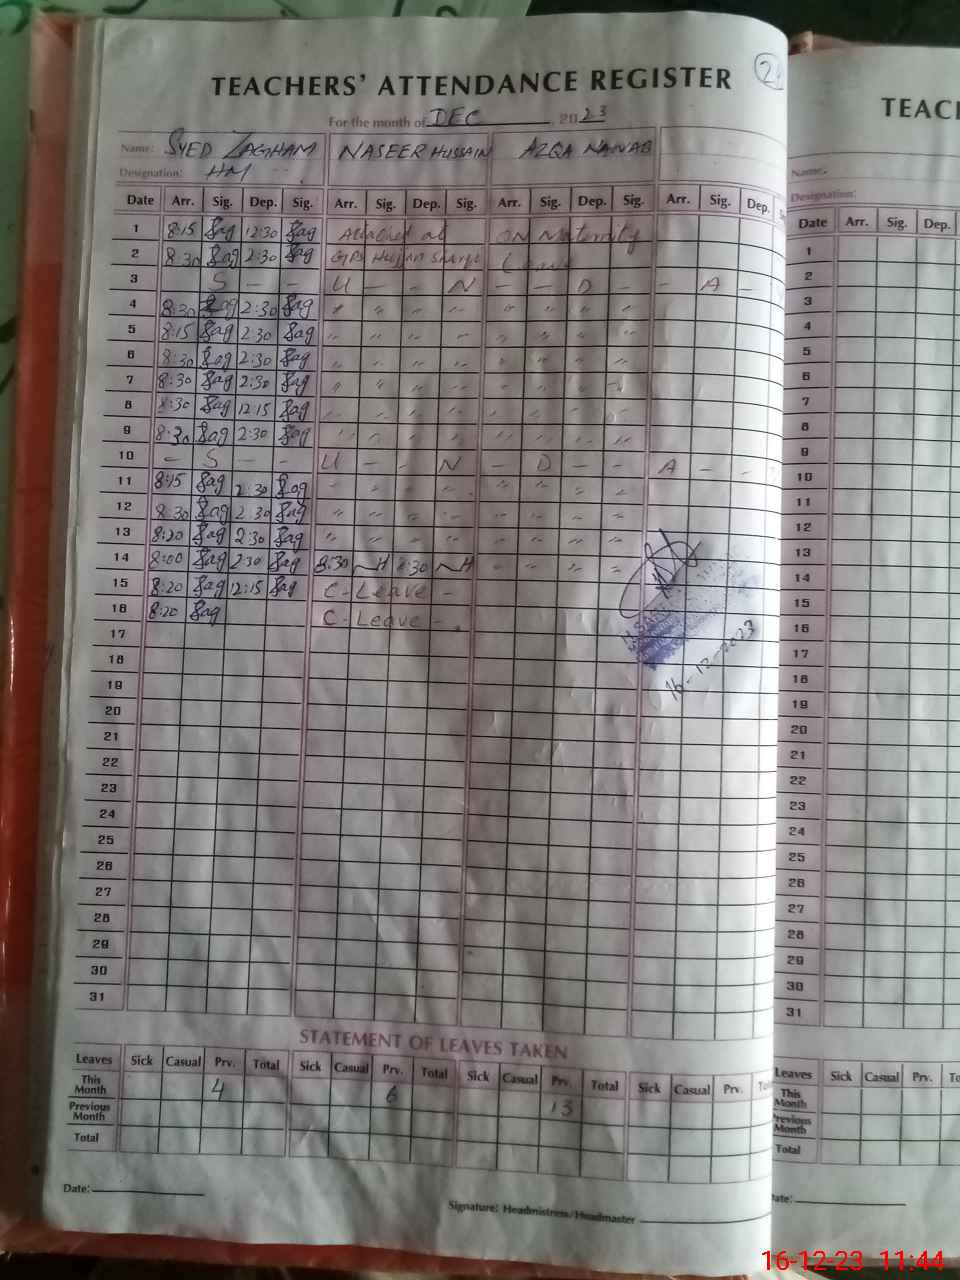 TEACHERS' ATTENDANCE REGISTER
For the month of DEC, 2023
Name: SYED ZAGHAM NASEER HUSSAIN AZQA NAWAB
Designation: HM
Date Arr. Sig. Dep. Sig. Arr. Sig. Dep. Sig. Arr. Sig. Dep. Sig. Arr. Sig. Dep.
1 8:15 Zag 12:30 Zag Attached at ON Maternity
2 8:30 Zag 2:30 Zag GPS Leave
3 S - - U - - N - - D - - A -
4 8:30 Zag 2:30 Zag " " " " " " " "
5 8:15 Zag 2:30 Zag " " " " " " " "
6 8:30 Zag 2:30 Zag " " " " " " " "
7 8:30 Zag 2:30 Zag " " " " " " " "
8 8:30 Zag 12:15 Zag " " " " " " " "
9 8:30 Zag 2:30 Zag " " " " " " " "
10 - S - - U - - N - D - - A - -
11 8:15 Zag 2:30 Zag " " " " " " " "
12 8:30 Zag 2:30 Zag " " " " " " " "
13 8:20 Zag 2:30 Zag " " " " " " " "
14 8:00 Zag 2:30 Zag 8:30 NH 2:30 NH " " " "
15 8:20 Zag 12:15 Zag C. Leave -
16 8:20 Zag C. Leave -
17
16-12-2023
18
19
20
21
22
23
24
25
26
27
28
29
30
31
STATEMENT OF LEAVES TAKEN
Leaves Sick Casual Prv. Total Sick Casual Prv. Total Sick Casual Prv. Total Sick Casual Prv.
This Month 4 6 13
Previous Month
Total
Date:
Signature: Headmistress/Headmaster
TEAC
Name.
Designation:
Date Arr. Sig. Dep.
1
2
3
4
5
6
7
8
9
10
11
12
13
14
15
16
17
18
19
20
21
22
23
24
25
26
27
28
29
30
31
Leaves Sick Casual Prv.
This Month
Previous Month
Total
16-12-23 11:44